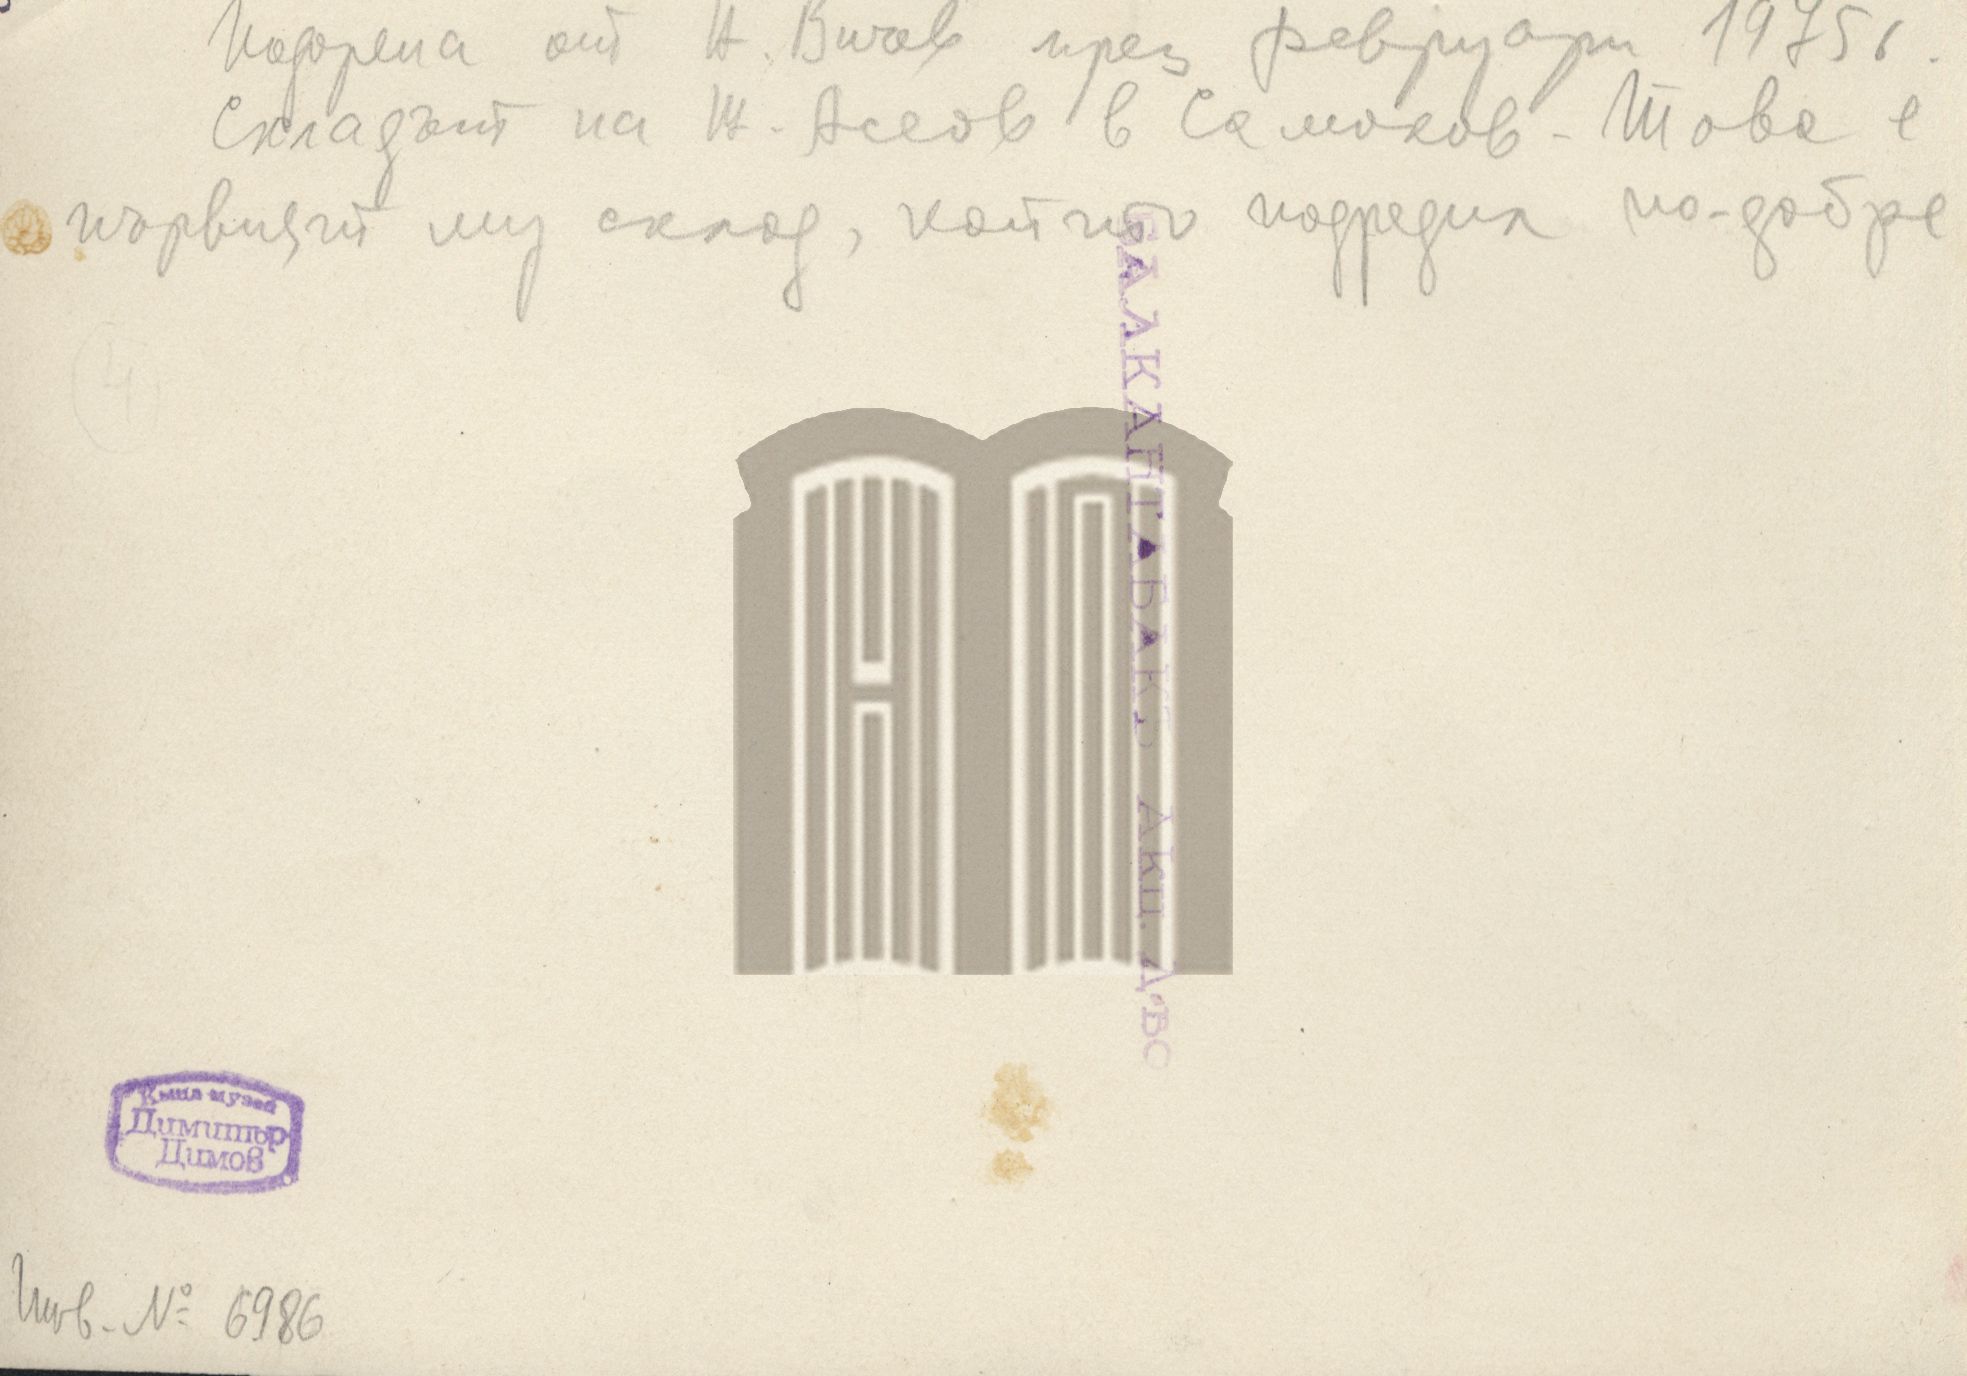 Подарена от Н. Вичов през февруари 1975 г.
Складът на Ж. Асеов в Самоков - Това е
първият му склад, който подредил по-добре
4
БАЛКАНТАБАКЪ АКЦ. Д-ВО
Къща-музей
Димитър
Димов
Инв. № 6986